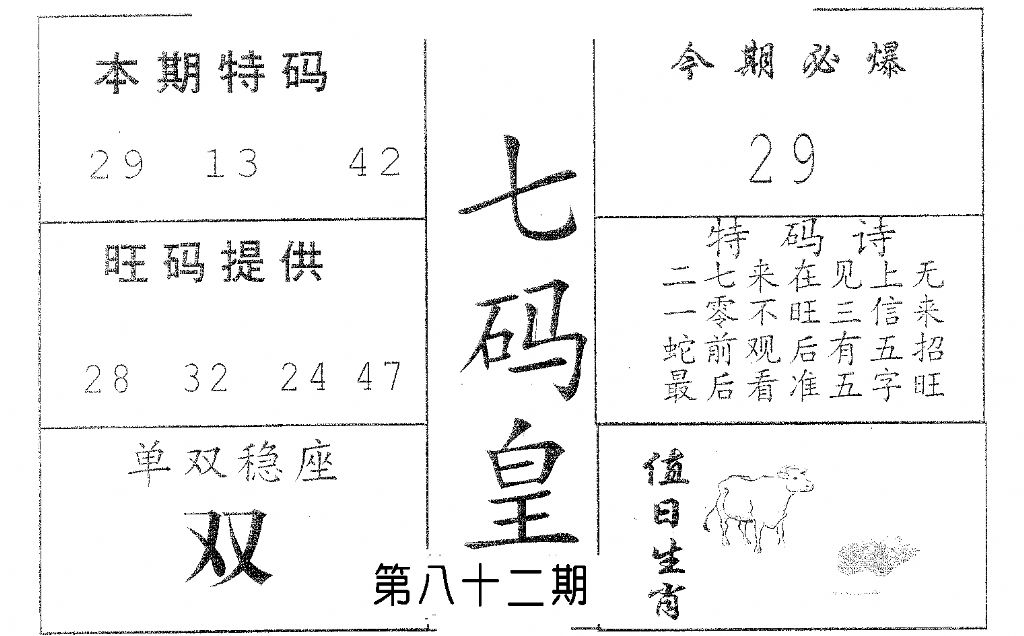 本期特码
29 13 42
旺码提供
28 32 24 47
单双稳座
双
七码皇
第八十二期
今期必爆
29
特码诗
二七来在见上无
一零不旺三信来
蛇前观后有五招
最后看准五字旺
值日生肖